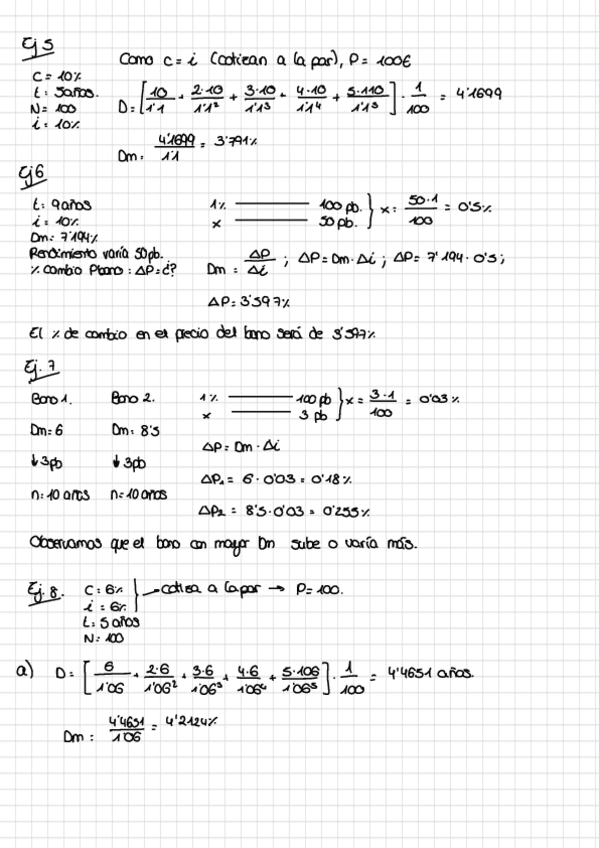 Ej 5
Como c = i (cotizan a la par), P = 100€
C = 10%
t: 5años.
N = 100
i = 10%
D = [10/1'1 + 2·10/1'1² + 3·10/1'1³ + 4·10/1'1⁴ + 5·110/1'1⁵] · 1/100 = 4'1699
Dm: 4'1699/1'1 = 3'791%
Ej 6
t: 9años
i = 10%
Dm = 7'194%
Rendimiento varía 50pb.
% cambio Pbono: ΔP=¿?
1% ——— 100 pb.
x ——— 50 pb.
} x: 50·1/100 = 0'5%
Dm = ΔP/Δi ; ΔP = Dm·Δi ; ΔP = 7'194·0'5 ;
ΔP = 3'597%
El % de cambio en el precio del bono será de 3'597%
Ej. 7
Bono 1. Bono 2.
Dm = 6 Dm: 8'5
↓3pb ↓3pb
n: 10 años n = 10 años
1% ——— 100 pb
x ——— 3 pb
} x = 3·1/100 = 0'03%
ΔP = Dm · Δi
ΔP₁ = 6·0'03 = 0'18%
ΔP₂ = 8'5·0'03 = 0'255%
Observamos que el bono con mayor Dm sube o varía más.
Ej. 8.
C: 6%
i = 6%
} cotiza a la par → P = 100.
t: 5 años
N = 100
a) D = [6/1'06 + 2·6/1'06² + 3·6/1'06³ + 4·6/1'06⁴ + 5·106/1'06⁵] · 1/100 = 4'4651 años.
Dm: 4'4651/1'06 = 4'2124%